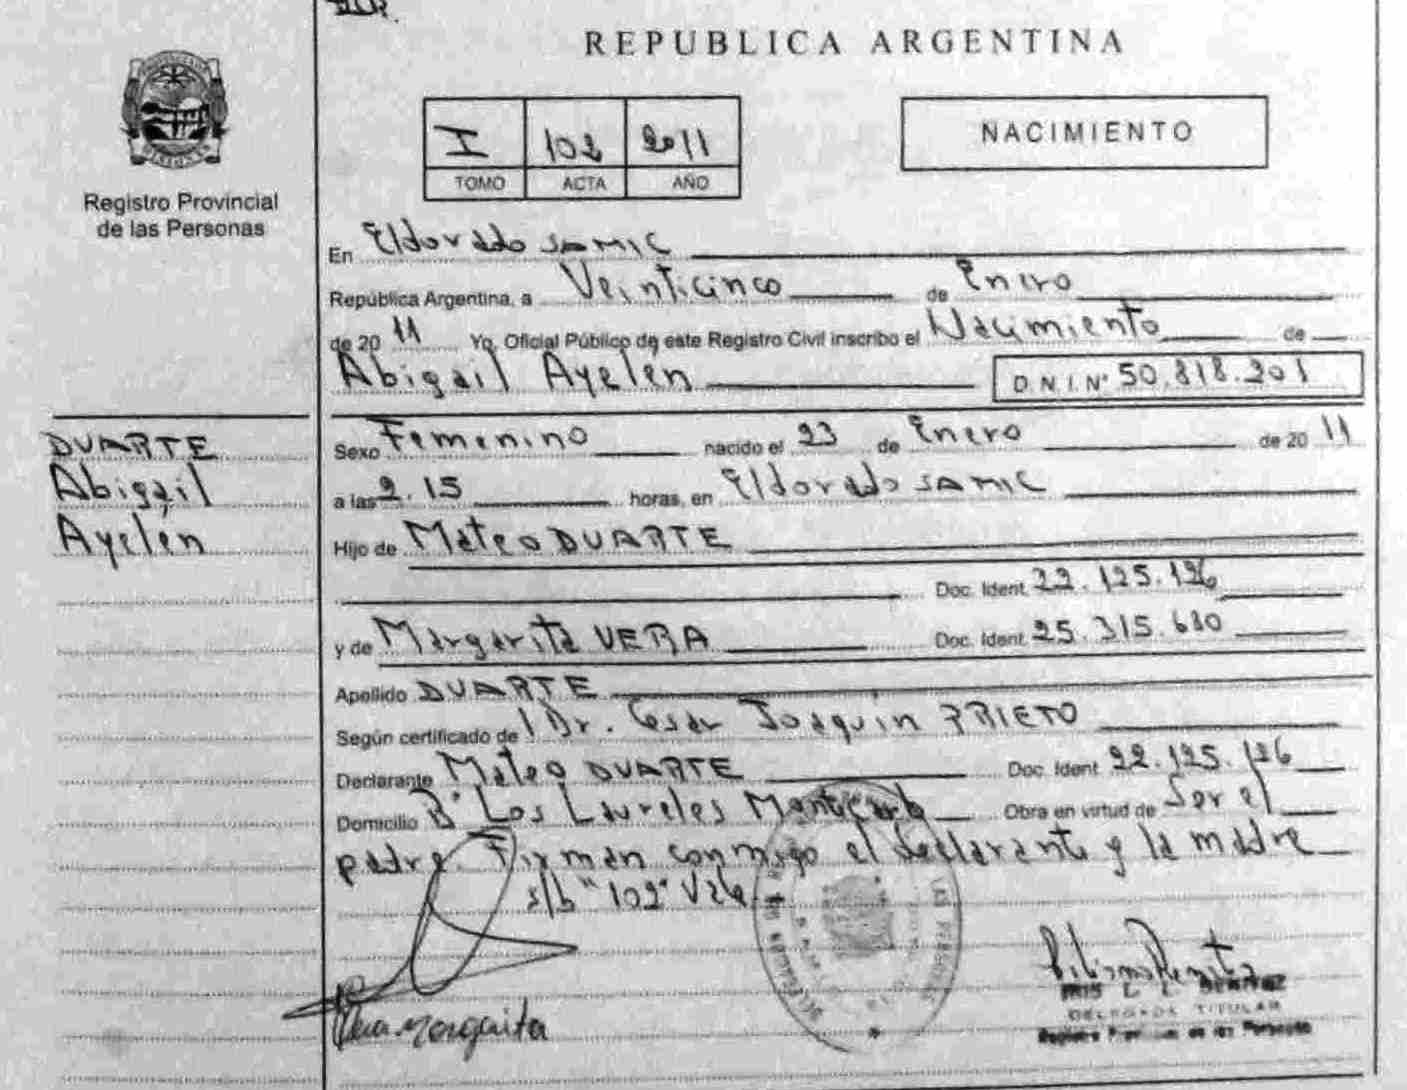 REPUBLICA ARGENTINA
I 102 2011
TOMO ACTA AÑO
NACIMIENTO
Registro Provincial
de las Personas
En Eldorado SAMIC
República Argentina, a Veinticinco de Enero
de 20 11 Yo, Oficial Público de este Registro Civil inscribo el Nacimiento de
Abigail Ayelén D.N.I. Nº 50.818.201
DUARTE
Abigail
Ayelén
Sexo Femenino nacido el 23 de Enero de 20 11
a las 2.15 horas, en Eldorado SAMIC
Hijo de Mateo DUARTE
Doc. Ident. 22.125.126
y de Margarita VERA Doc. Ident. 25.315.680
Apellido DUARTE
Según certificado de Dr. Cesar Joaquin PRIETO
Declarante Mateo DUARTE Doc. Ident. 22.125.126
Domicilio Bº Los Laureles Montecarlo Obra en virtud de ser el
padre. Firman conmigo el declarante y la madre
s/b "102" Vale
LAS PERSONAS
Margarita
BENITEZ
DELEGADA TITULAR
Registro Provincial de las Personas